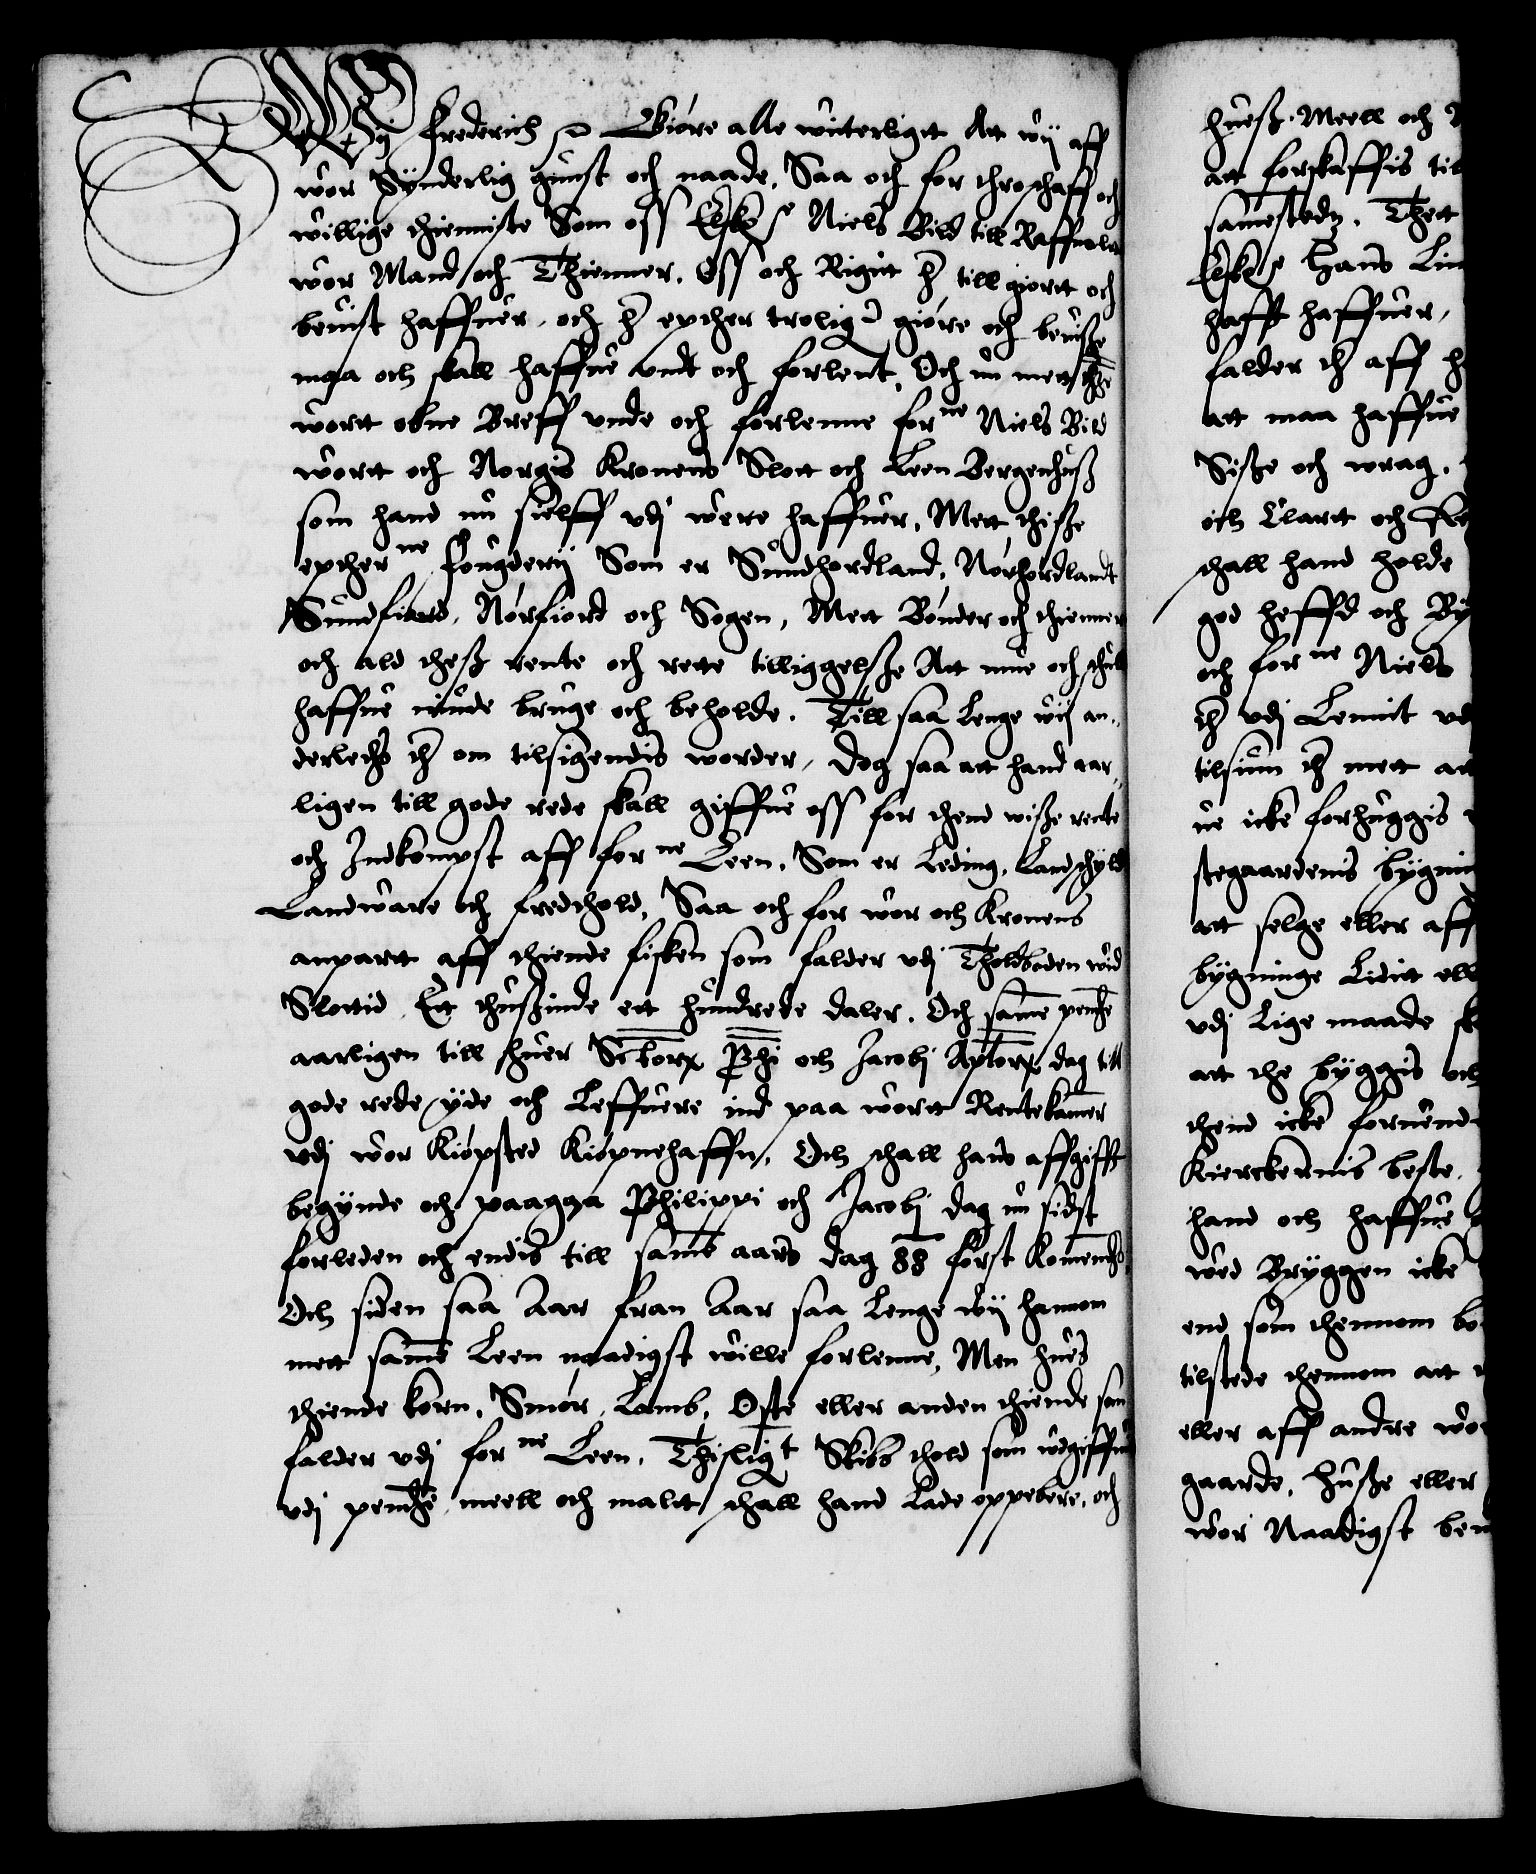 Wy Frederich etc Giøre alle witterligt Att wij aff
wor Synderlig gunst och naade, Saa och for throschaff och
willige thienniste Som oss Elske: Niels Bild till Raffnolt
wor Mand och Thienner, Oss och Rigit her till giort och
beuist haffuer, och her epther trolig giøre och beuisße
maa och skall haffue undt och forlent, Och nu mett the
wort obne Breff unde och forlenne forne Niels Bild
wortt och Norgis Kronens Slott och Leen Bergenhuß
som hand nu sielff udj were haffuer, Mett thisße
epcherne fougderij Som er Sundhordland, Nørhordlandt
Sundfiord, Nørfiord och Sogen, Mett Bønder och thienner
och ald theß rente och rette tilliggelsße Att mue och schulle
haffue niude bruge och beholde. Till saa Lenge wij an-
derledis ther om tilsigendis worder, Dog saa att hand aar-
ligen till gode rede skall giffue oss for thend wisße rente
och Indkompst aff forne Leen, Som er Leding, Landschyld
Landware och fredthold, Saa och for wor och Kronens
anpartt aff thiende fisken som falder udj Tholdboden wid
Slottid Ett thusßinde ett hundrede daler. Och same penge
aarligen till huer Sctorx Phi och Jacobj Aptorx dag till
gode rede yde och Leffuere ind paa wortt Rentekamer
udj wor Kiøpsted Kiøpnehaffn, Och schall hans affgifft
begynde och paagaa Philippi och Jacobj dag nu sidst
forleden och endis till same aars dag 88 først Komendis
Och siden saa Aar fran Aar saa Lenge wij hannom
mett same Leen naadigst wille forlenne, Men hues
thiende korn, Smør, Lamb, Oste eller anden thiende som
falder udj forne Leen, Thisligt Skibs thold som udgiffuis
udj penge meell och maltt schall hand Lade oppebere, och
hueß Meell och
att forskaffis til
samestedz. Thett
Elske: Hans Lin
hafft haffuer,
falder ther aff h
att maa haffue
Sisße och wrag,
och Clartt och
schall hand holde
god heffd och By
och forne Niels
ther udj Lennit ud
tilsiun ther mett att
ue icke forhuggis
stegaardenis bygnin
att selge eller aff
bygninge Lidit ell
udj Lige maade sk
att the byggis och
thend icke foruend
Kierckernis beste.
hand och haffue
wed Bryggen icke
end som thennom bø
tilstede thennom att
eller aff andre wor
gaarde, husße eller
wor Naadigst ben